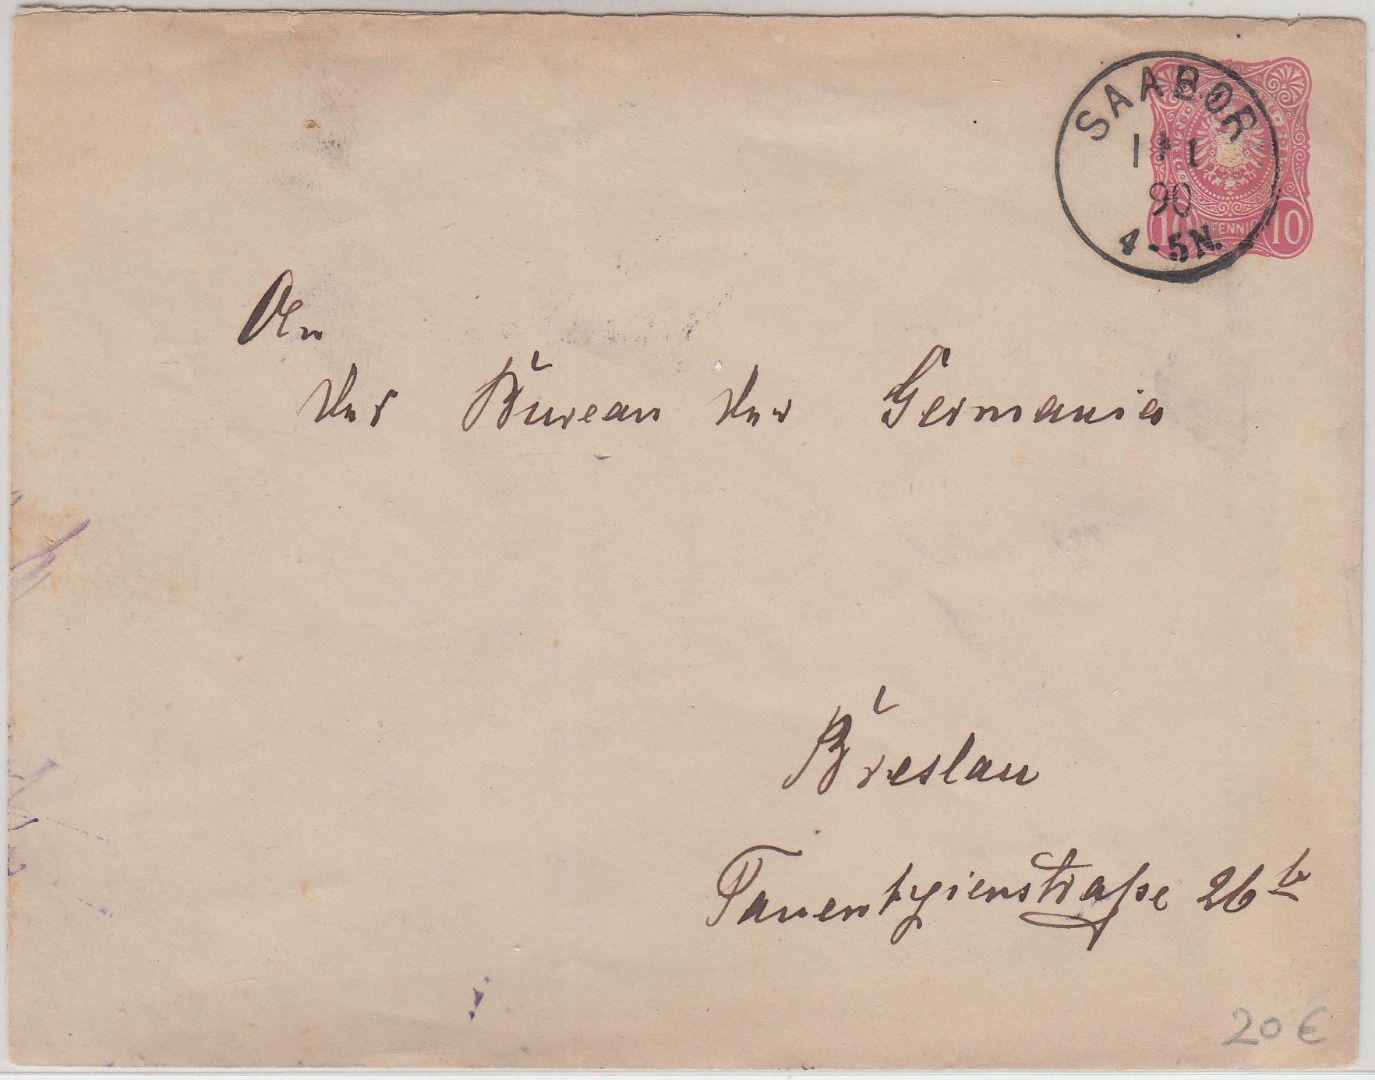 SAABOR
1 1
90
4-5N.
10 PFENNIG 10
An
der Bureau der Germania
Breslau
Tauentzienstraße 26b
20 €